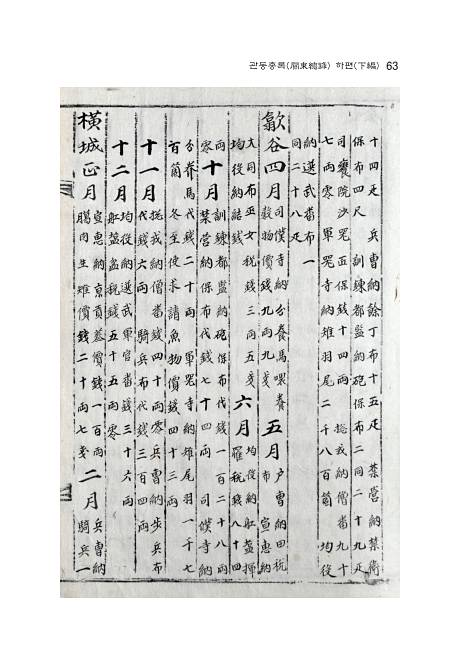 관동총록(關東總錄) 하편(下編) 63
十四疋 兵曹納餘丁布十五疋 禁營納禁衛
保布四尺 訓鍊都監納砲保布二同二十九疋
司饔院沙器匠保錢十四兩 摠戎納僧番九十
七兩零 軍器寺納雉羽尾二千八百箇 均役
納選武番布一
同二十八疋
歙谷四月 司僕寺納分養馬喂養
穀物價錢九兩九戔 五月 戶曹納田稅
布 宣惠納
大同布巫女稅錢三兩五戔
均役納結錢 六月 均役納船鹽掃
羅稅錢八十四
兩零 十月 訓鍊都監納砲保布代錢一百二十八兩
禁營納保布代錢七十四兩 司僕寺納
分養馬代錢二十兩 軍器寺納雉尾羽一千七
百箇 冬至使求請魚物價錢四十三兩
十一月 摠戎納僧番錢四十兩零 兵曹納步兵布
代錢六兩 騎兵布代錢三百四兩
十二月 均役納選武軍官番錢三十六兩
船鹽盆稅錢五十五兩零
橫城正月 宣惠納京貢蔘價錢一百兩
臘肉生雉價錢二十兩七戔 二月 兵曹納
騎兵一